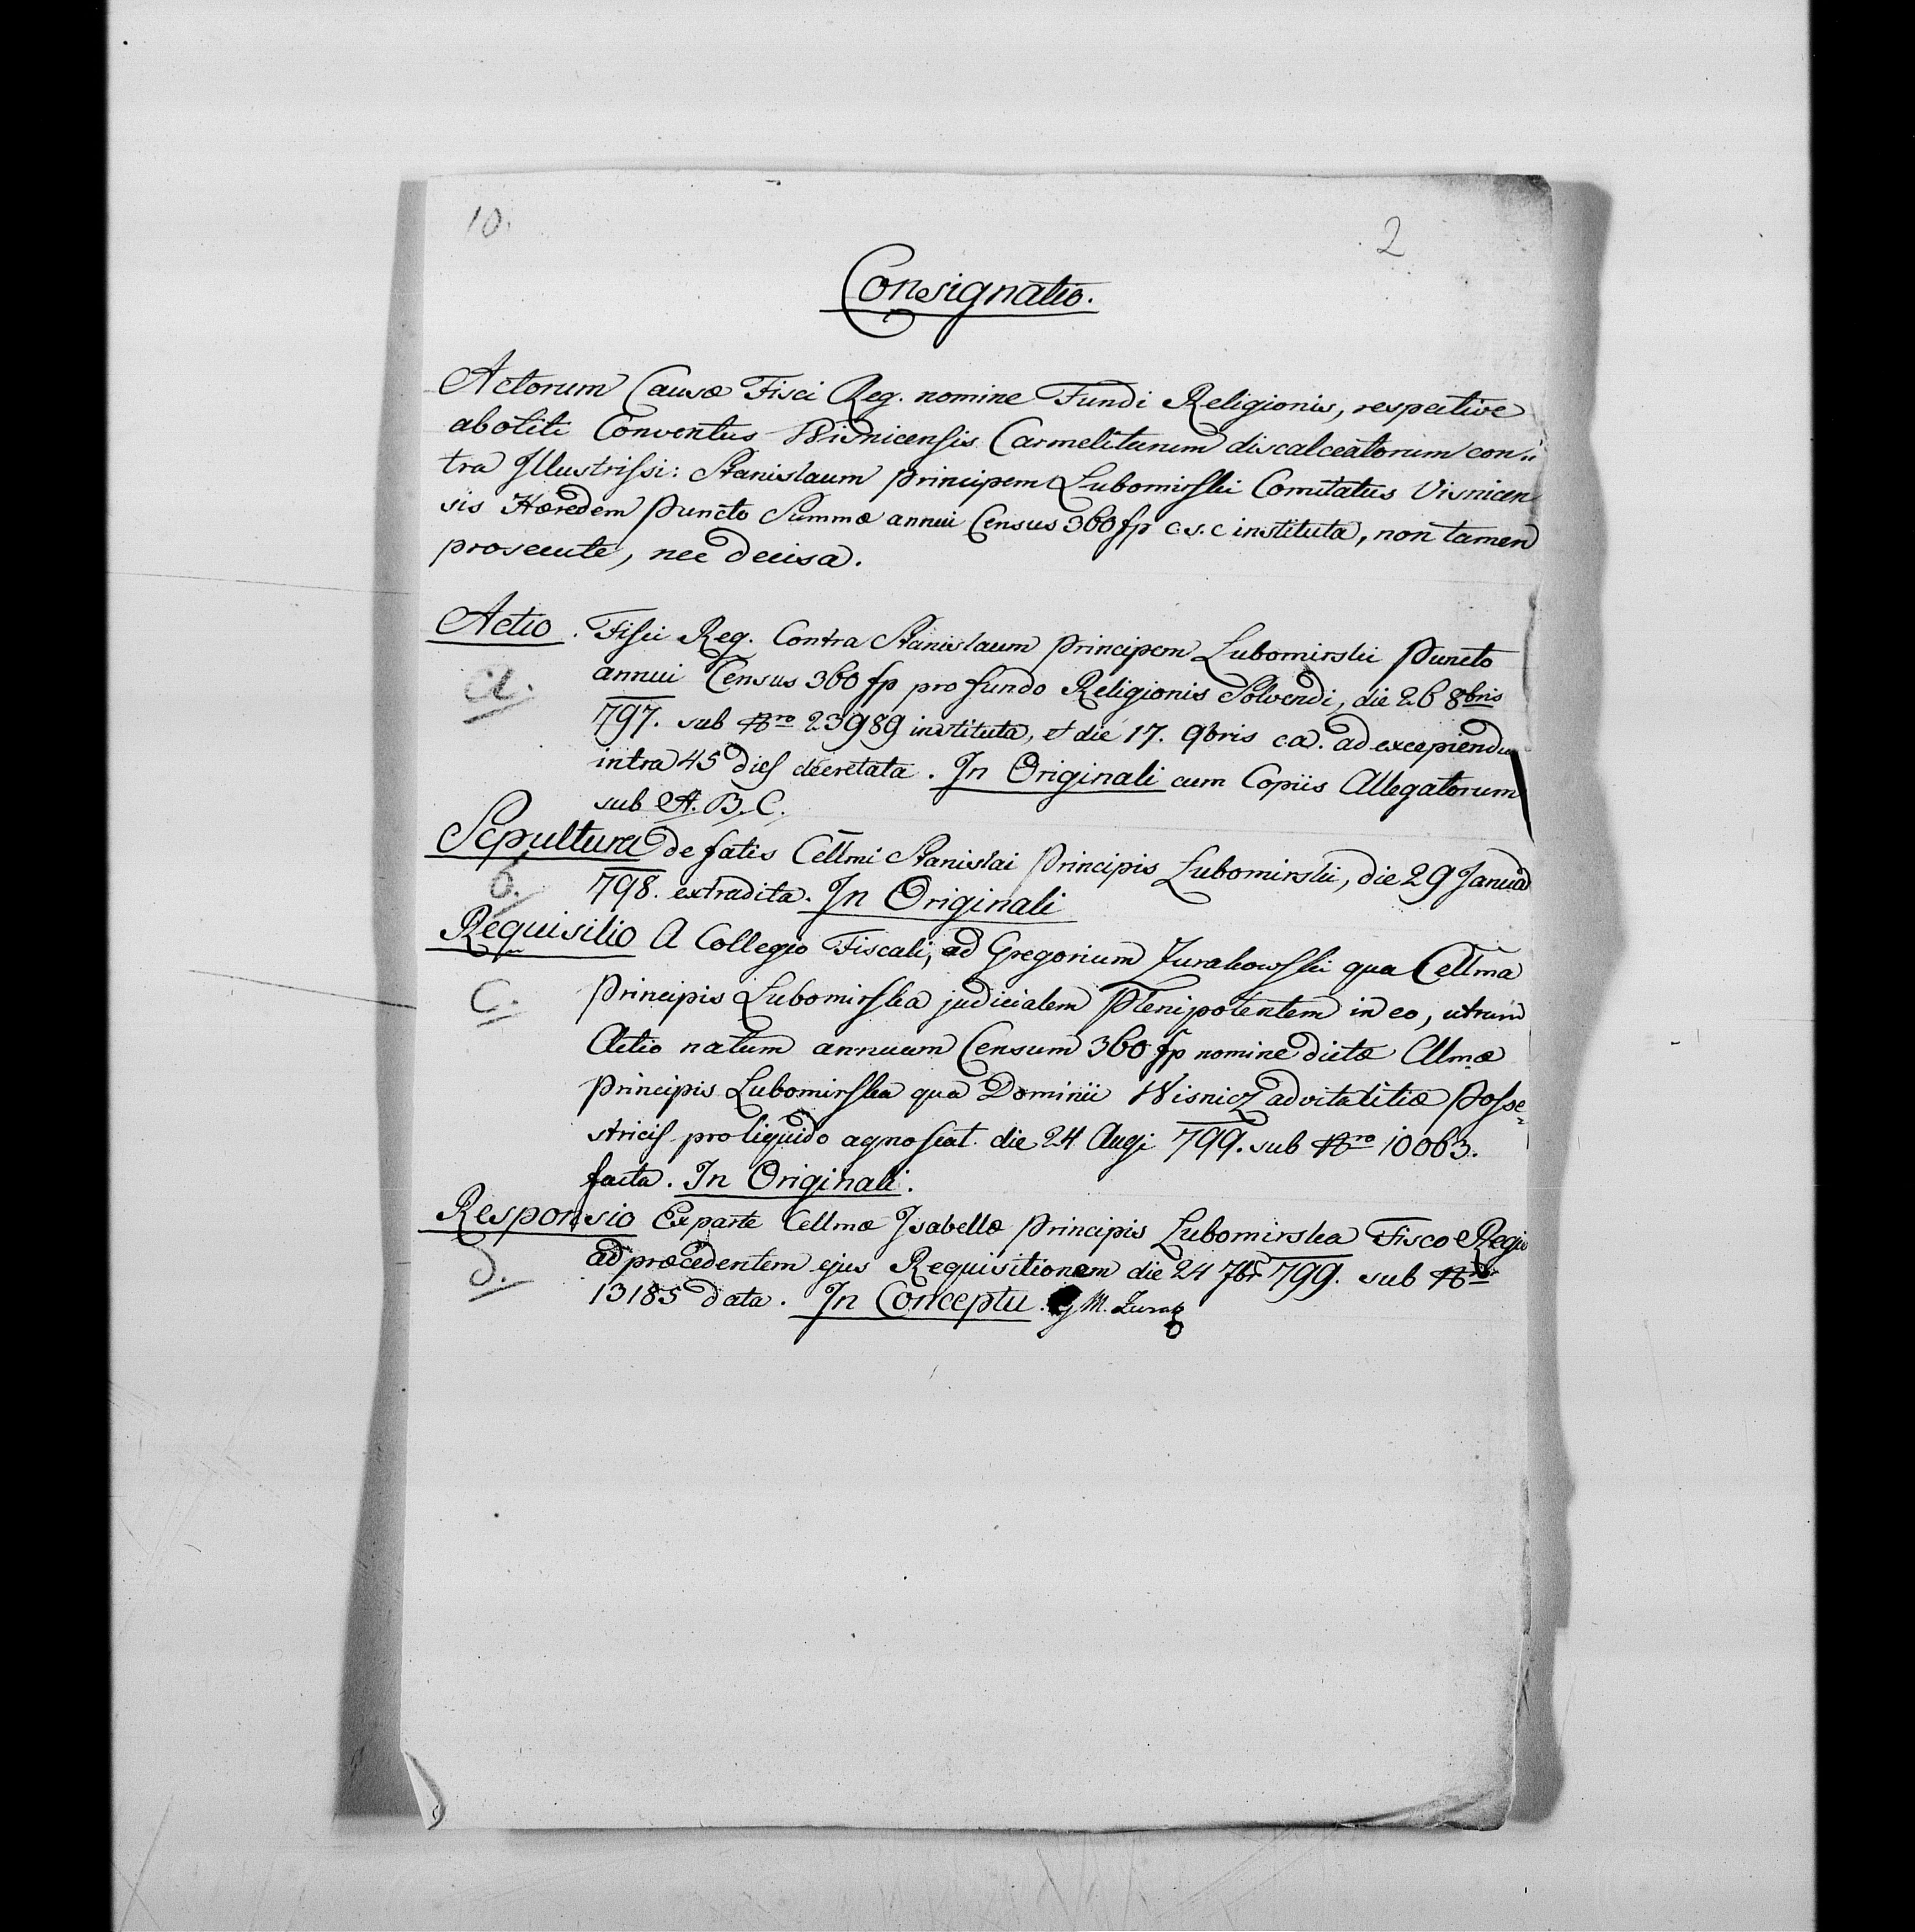 10.
2
Consignatio.
Actorum Causæ Fisci Reg. nomine Fundi Religionis, respective
aboliti Conventus Wisnicensis Carmelitarum discalceatorum con„
tra Illustrissi: Stanislaum Principem Lubomirski Comitatus Visnicen
sis Hæredem Puncto Summæ annui Census 360 fp c.s.c instituta, non tamen
prosecute, nec decisa.
Actio. Fisci Reg. Contra Stanislaum Principem Lubomirski Puncto
a. annui Census 360 fp pro fundo Religionis Solvendi, die 26 8bris
797. sub Nro 23989 instituta, et die 17. 9bris c.a. ad excepiendu
intra 45 dies decretata. In Originali cum Copiis Allegatorum
sub A. B. C.
Sepultura de fatis Cellmi Stanislai Principis Lubomirski, die 29 Januar
b. 798. extradita. In Originali
Requisitio A Collegio Fiscali, ad Gregorium Zurakowski qua Cellma
c. Principis Lubomirska judicialem Plenipotentem in eo, utrum
Actio natum annuum Censum 360 fp nomine dictæ Cllmæ
Principis Lubomirska qua Dominii Wisnicz advitalitiæ Posse„
stricis pro liquido agnoscat. die 24 Augi 799. sub Nro 10063.
facta. In Originali.
Responsio Ex parte Cellmæ Isabellæ Principis Lubomirska Fisco Regio
d. ad præcedentem ejus Requisitionem die 24 7br 799. sub Nro
13185 data. In Conceptu.